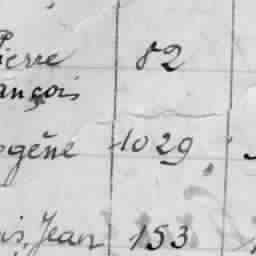 Pierre 82
ançois
ogène 1029
is, Jean 153